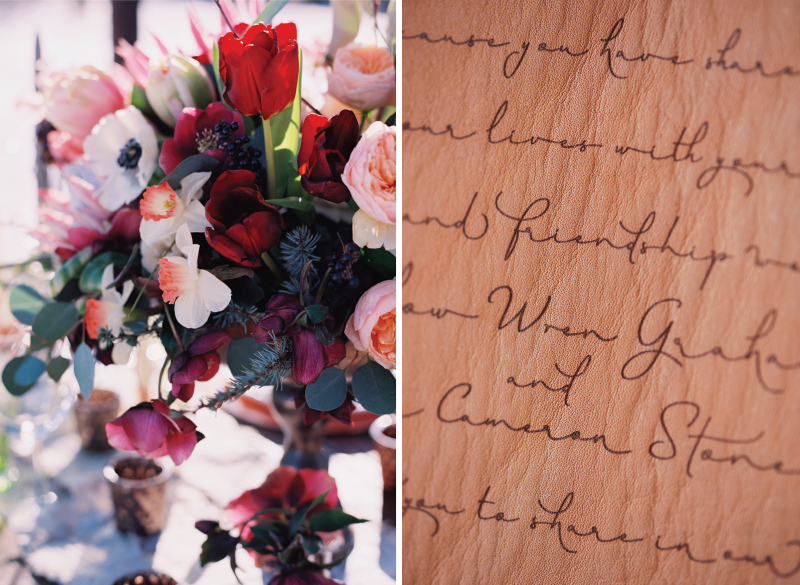 ause you have share
our lives with your
and friendship we
Wren Graha
and
Cameron Stone
you to share in our